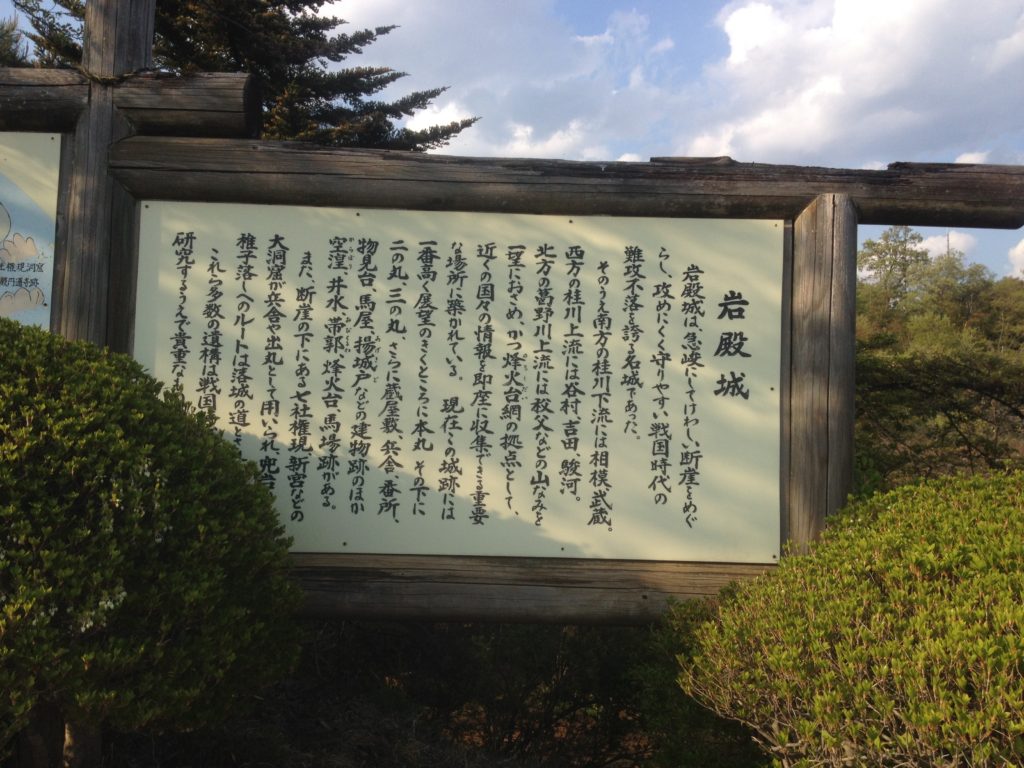 岩殿城
岩殿城は、急峻にしてけわしい断崖をめぐ
らし、攻めにくく守りやすい戦国時代の
難攻不落を誇る名城であった。
そのうえ南方の桂川下流には相模、武蔵。
西方の桂川上流には谷村、吉田、駿河。
北方の葛野川上流には秩父などの山なみを
一望におさめ、かつ烽火台網の拠点として
近くの国々の情報を即座に収集できる重要
な場所に築かれている。 現在この城跡には
一番高く展望のきくところに本丸 その下に
二の丸、三の丸 さらに蔵屋敷 兵舎、番所、
物見台、馬屋、揚城戸などの建物跡のほか
空湟、井水、帯郭、烽火台、馬場跡がある。
また、断崖の下にある七社権現、新宮などの
大洞窟が兵舎や出丸として用いられ、兜岩
稚子落しへのルートは落城の道と
これら多数の遺構は戦国
研究するうえで貴重な
社権現洞窟
殿円通寺跡